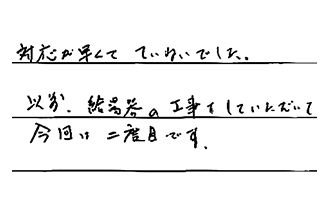 対応が早くて ていねいでした。
以前、給湯器の工事をしていただいて
今回は 二度目です。